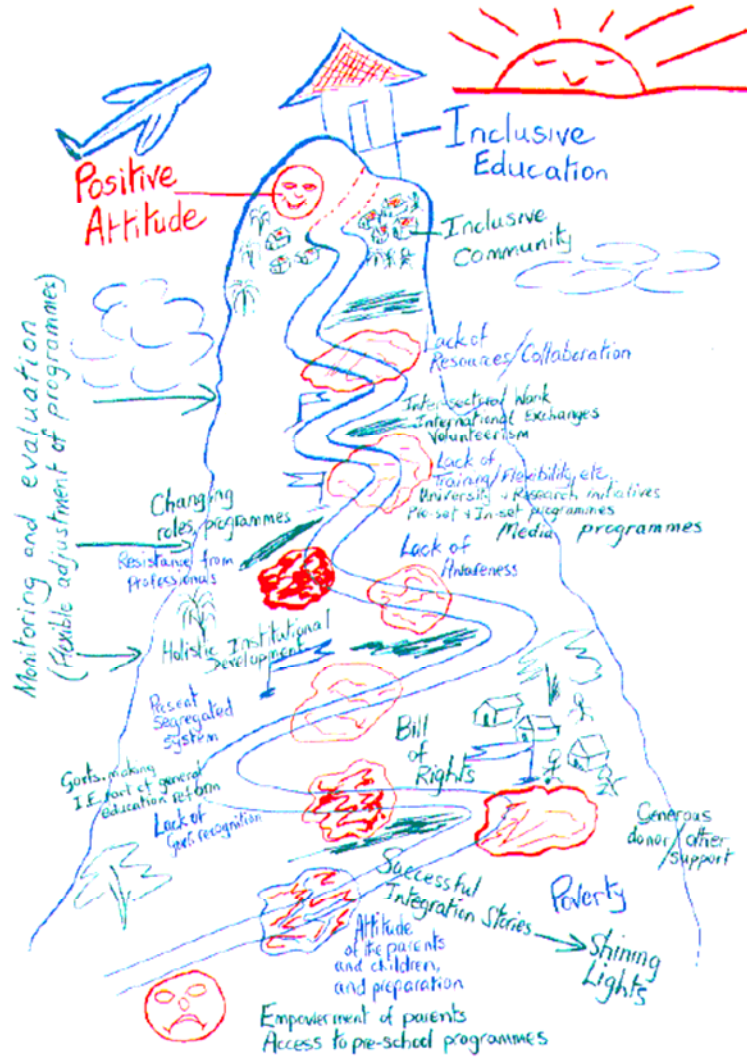 Inclusive
Education
Positive
Attitude
Inclusive
Community
Monitoring and evaluation
(flexible adjustment of programmes)
Lack of
Resources/Collaboration
Inter-sectoral Work
International Exchanges
Volunteerism
Lack of
Training/Flexibility, etc
University & Research initiatives
Pre-set & In-set programmes
Media programmes
Changing
roles, programmes
Resistance from
Professionals
Lack of
Awareness
Holistic Institutional
Development
Present
Segregated
System
Bill
of
Rights
Govts. making
I.E. part of general
education reform
Lack of
Govt. recognition
Generous
donor/other
support
Successful
Integration Stories
Poverty
Shining
Lights
Attitude
of the parents
and children,
and preparation
Empowerment of parents
Access to pre-school programmes